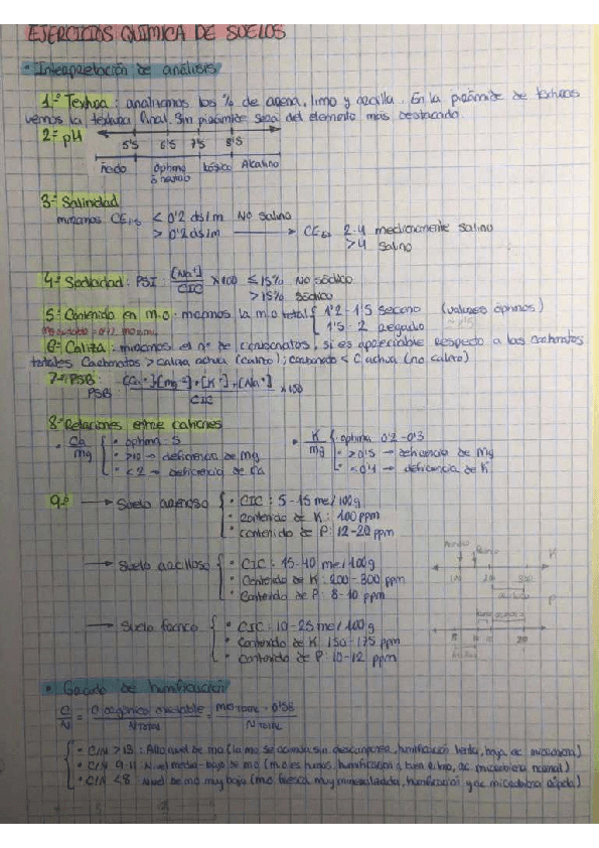 EJERCICIOS QUÍMICA DE SUELOS
• Interpretación de análisis
1.º Textura: analizamos los % de arena, limo y arcilla. En la pirámide de texturas
vemos la textura final. Sin pirámide será del elemento más destacado.
2º pH
5'5 6'5 7'5 8'5
Ácido óptimo o neutro básico Alcalino
3º Salinidad
miramos CE1:5 < 0'2 dS/m No salino
> 0'2 dS/m → CEes 2-4 medianamente salino
>4 salino
4º Sodicidad: PSI: [Na⁺]/CIC x100 ≤15% No sódico
>15% sódico
5º Contenido en m.o: miramos la m.o total { 1'2-1'5 secano (valores óptimos)
1'5-2 regadío
6º Caliza: miramos el nº de carbonatos, si es apreciable respecto a los carbonatos
totales Carbonatos > caliza activa (calizo); carbonato < C activa (no calizo)
7º PSB:
PSB: [Ca⁺²]+[Mg⁺²]+[K⁺]+[Na⁺]/CIC x100
8º Relaciones entre cationes
• Ca/Mg { • óptima 5
• >10 → deficiencia de Mg
• <2 → deficiencia de Ca
• K/Mg { • óptima 0'2-0'3
• >0'5 → deficiencia de Mg
• <0'1 → deficiencia de K
9º → Suelo arenoso { • CIC: 5-15 me/100g
• contenido de K: 100 ppm
• contenido de P: 12-20 ppm
→ Suelo arcilloso { • CIC: 15-40 me/100g
• Contenido de K: 200-300 ppm
• Contenido de P: 8-10 ppm
→ Suelo franco { • CIC: 10-25 me/100g
• Contenido de K: 150-175 ppm
• Contenido de P: 10-12 ppm
• Grado de humificación
C/N = C orgánico oxidable/N TOTAL = MO TOTAL · 0'58/N TOTAL
• C/N > 13: Alto nivel de mo (la mo se acumula sin descomponer, humificación lenta, baja ac microbiana)
• C/N 9-11: Nivel medio-bajo de mo (mo es humus, humificación a buen ritmo, ac microbiana normal)
• C/N < 8: Nivel de mo muy bajo (mo fresca muy mineralizada, humificación y ac microbiana rápida)